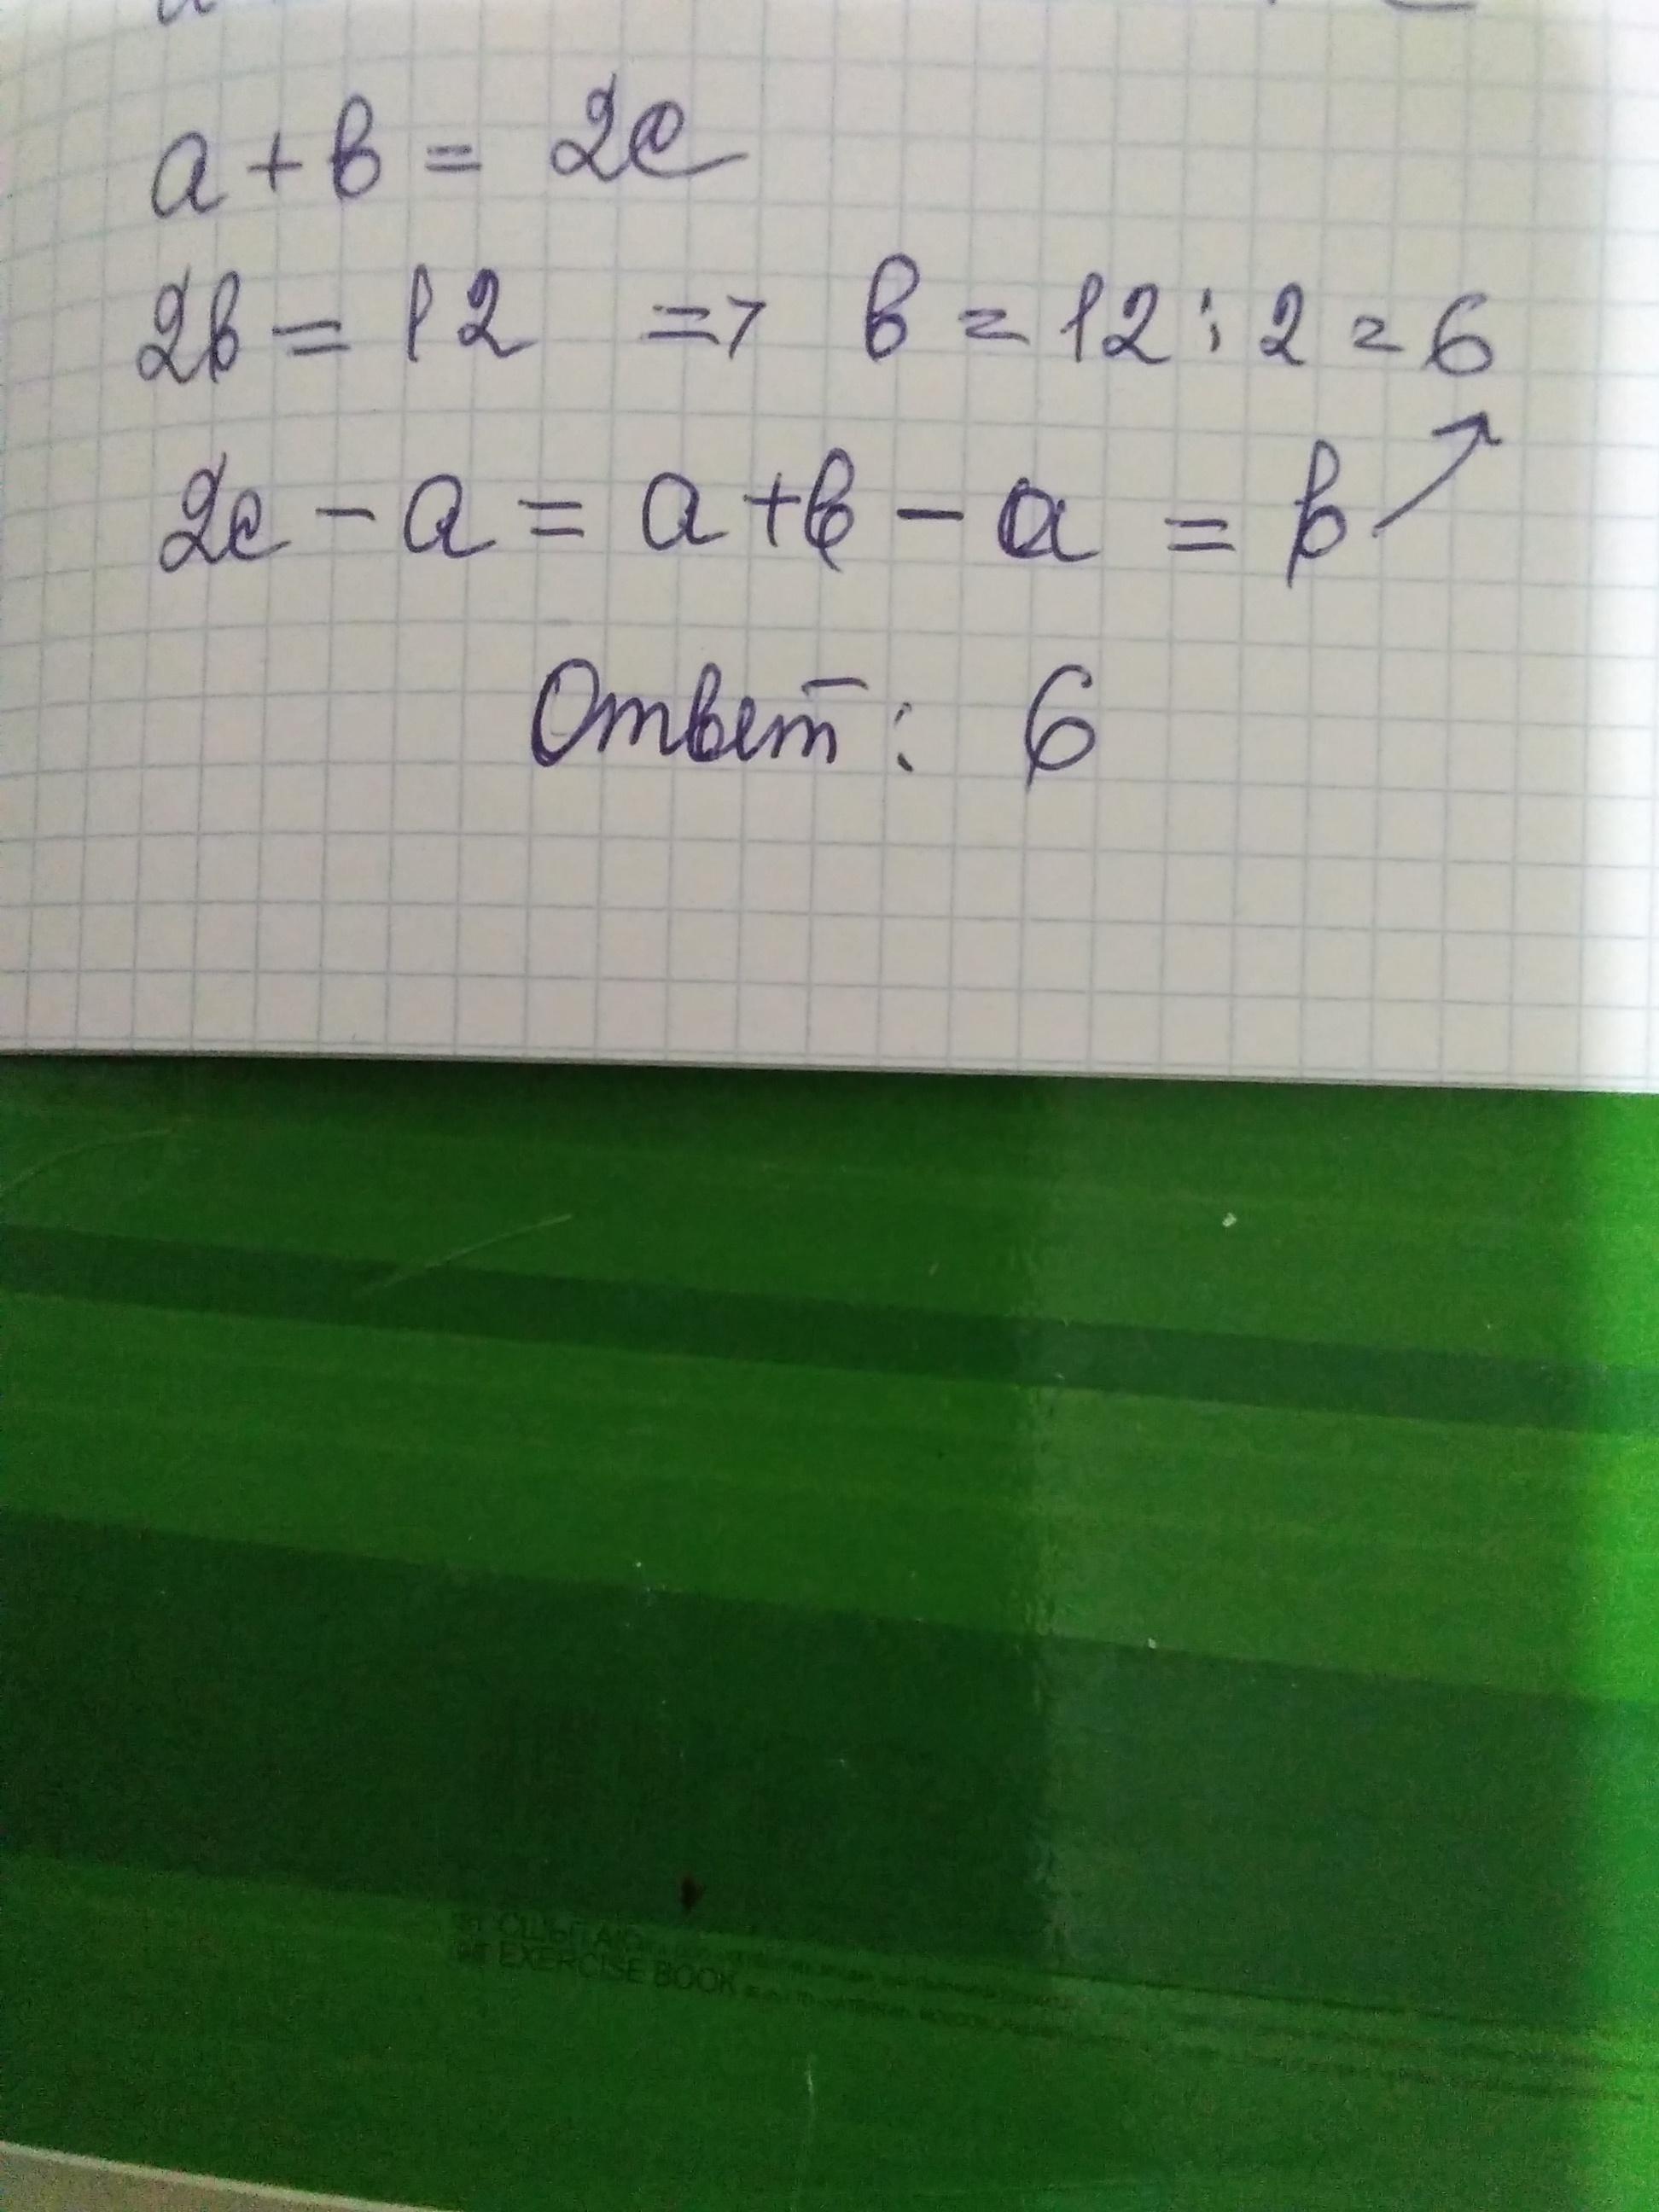 a + b = 2c
2b = 12 => b = 12 : 2 = 6
2c - a = a + b - a = b
Ответ: 6
EXERCISE BOOK